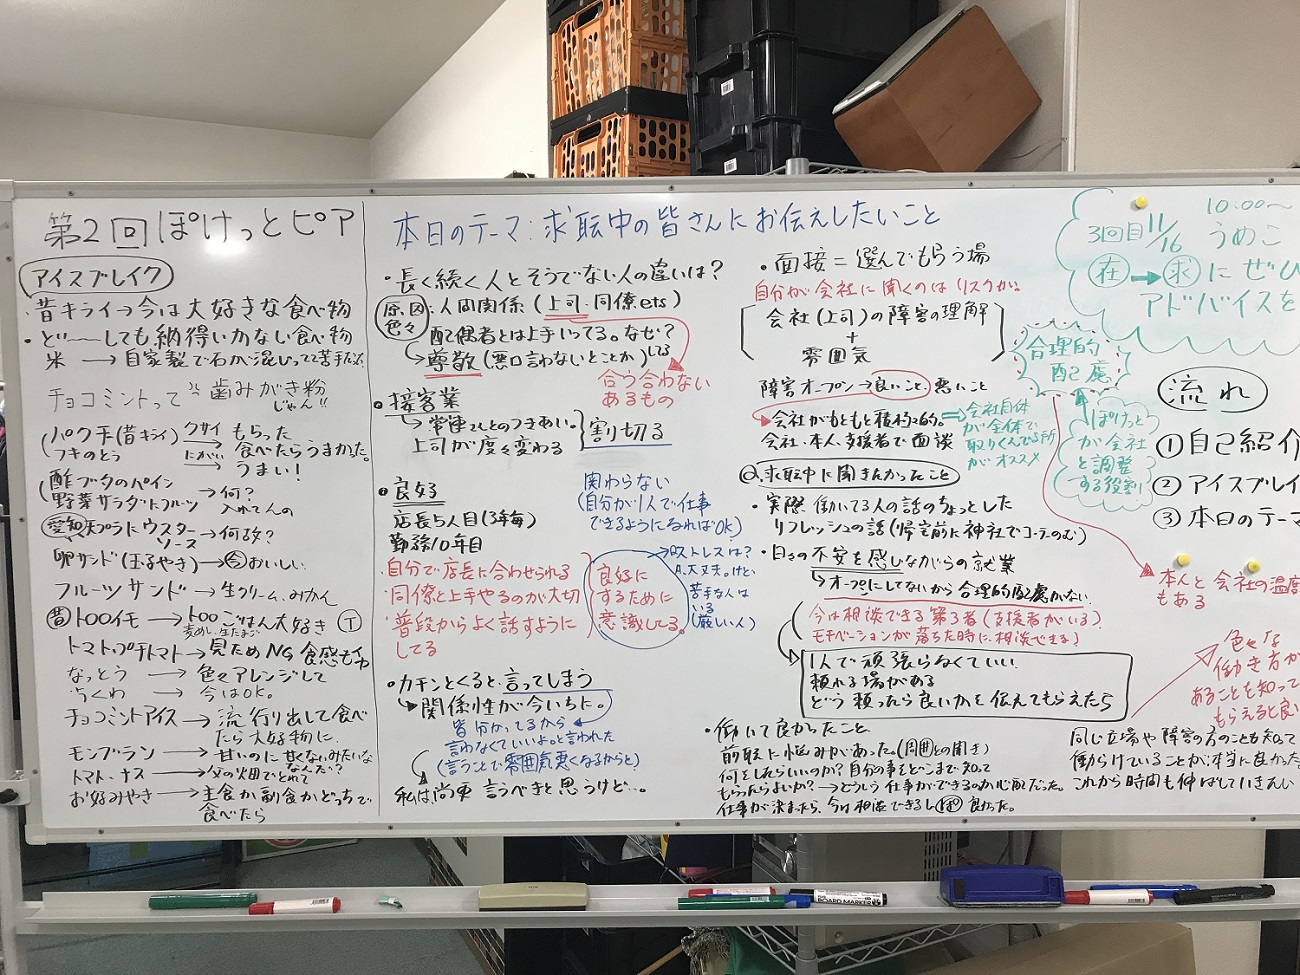 第2回ぽけっとピア
アイスブレイク
・昔キライ→今は大好きな食べ物
・ど〜〜しても納得いかない食べ物
米 → 自家製で石が混ざってて苦手
チョコミントって 歯みがき粉
じゃん!!
パクチー(昔キライ) クサイ → もらった
フキのとう にがい → 食べたらうまかった。
うまい!
酢ブタのパイン
野菜サラダにフルーツ → 何?
入れてんの
愛知 天プラにウスター
ソース → 何故?
卵サンド(玉子やき) → 今 おいしい
フルーツサンド → 生クリーム、みかん
昔 トロロイモ → トロロごはん大好き
麦めし、生たまご
トマト・プチトマト → 見ためNG 食感も
なっとう → 色々アレンジして
ちくわ → 今はOK。
チョコミントアイス → 流行り出して食べ
たら大好物に
モンブラン → 甘いのに甘くないみたいな
なくんだ?
トマト・ナス → 父の畑でとれて
お好みやき → 主食か副食かどっちで
食べたら
本日のテーマ:求転中の皆さんにお伝えしたいこと
・長く続く人とそうでない人の違いは?
原因色々:人間関係(上司・同僚ets)
配偶者とは上手いってる。なぜ?
→尊敬(悪口言わないとことか)してる
合う合わない
あるもの
・接客業
→常連さんとのつきあい。
上司が度々変わる
割切る
・良好
店長5人目(3年毎)
勤務10年目
関わらない
(自分が1人で仕事
できるようになればOK)
自分で店長に合わせられる
同僚と上手やるのが大切
普段からよく話すように
してる
良好に
するために
意識してる。
Q.ストレスは?
A.大丈夫。けど、
苦手な人は
いる
(厳しい人)
・カチンとくると言ってしまう
→関係性が今いちに。
皆分かってるから
言わなくていいよ。と言われた
(言うことで雰囲気悪くなるからと)
私は、尚更言うべきと思うけど…。
・面接=選んでもらう場
自分が会社に聞くのはリスクか。
会社(上司)の障害の理解
+
雰囲気
障害オープン→良いこと 悪いこと
→会社がもともと積極的。
会社・本人、支援者で面談
⇒会社自体
が全体で
取りくんでる所
がオススメ
Q.求転中に聞きたかったこと
・実際働いてる人の話のちょっとした
リフレッシュの話(帰宅前に神社でコーラのむ)
・日々の不安を感じながらの就業
→オープンにしてないから合理的配慮がない
今は相談できる第3者(支援者がいる)
モチベーションが落ちた時に、相談できる
1人で頑張らなくていい
頼れる場がある
どう頼ったら良いかを伝えてもらえたら
・働いて良かったこと
前職に悩みがあった。(周囲との関き)
何をしたらいいのか?自分の事をどこまで知って
もらったらよいか?→どういう仕事ができるのか心配だった。
仕事が決まったら、今は相談できるし良かった。
3回目 11/16
10:00〜
うめこ
在→求にぜひ
アドバイスを
合理的
配慮
ぽけっと
が会社
と調整
する役割
流れ
①自己紹介
②アイスブレイ
③本日のテーマ
本人と会社の温度
もある
色々な
働き方が
あることを知って
もらえると良い
同じ立場や障害の方のことも知って
働らけていることが本当に良かった
これから時間も伸ばしていきたい
BOARD MARKER